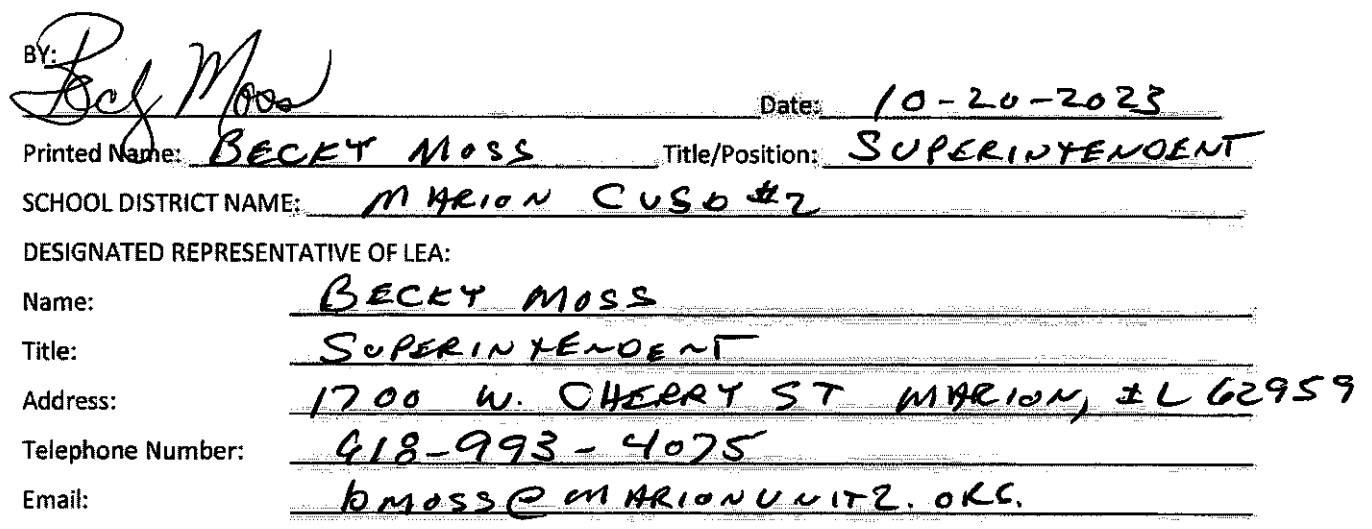 BY: Becky Moss
Date: 10-20-2023
Printed Name: BECKY MOSS Title/Position: SUPERINTENDENT
SCHOOL DISTRICT NAME: MARION CUSD #2
DESIGNATED REPRESENTATIVE OF LEA:
Name: BECKY MOSS
Title: SUPERINTENDENT
Address: 1700 W. CHERRY ST MARION, IL 62959
Telephone Number: 618-993-4075
Email: bmoss@MARIONUNIT2.ORG.